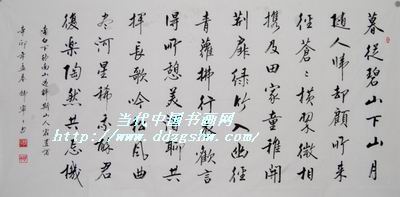 暮從碧山下山月
隨人歸却顧所來
徑蒼々橫翠微相
攜及田家童稚開
荆扉綠竹入幽徑
青蘿拂行衣歡言
得所憩美酒聊共
揮長歌吟松風曲
盡河星稀我醉君
復樂陶然共忘機
李白下終南山過斛斯山人宿置酒
辛卯年孟春
当代中国书画网
www.ddzgshw.com